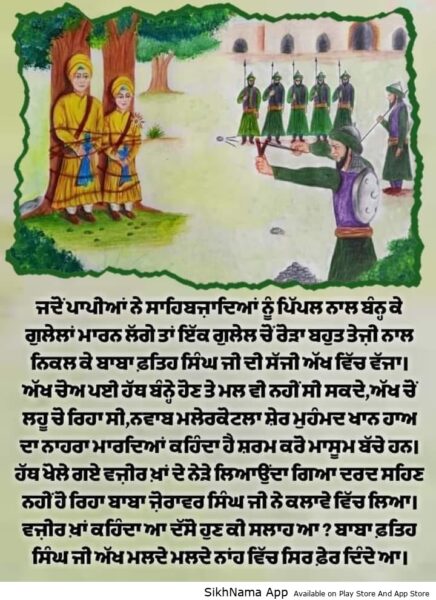 ਜਦੋਂ ਪਾਪੀਆਂ ਨੇ ਸਾਹਿਬਜ਼ਾਦਿਆਂ ਨੂੰ ਪਿੱਪਲ ਨਾਲ ਬੰਨ੍ਹ ਕੇ
ਗੁਲੇਲਾਂ ਮਾਰਨ ਲੱਗੇ ਤਾਂ ਇੱਕ ਗੁਲੇਲ ਚੋਂ ਰੋੜਾ ਬਹੁਤ ਤੇਜ਼ੀ ਨਾਲ
ਨਿਕਲ ਕੇ ਬਾਬਾ ਫ਼ਤਿਹ ਸਿੰਘ ਜੀ ਦੀ ਸੱਜੀ ਅੱਖ ਵਿੱਚ ਵੱਜਾ।
ਅੱਖ ਚੋਅ ਪਈ ਹੱਥ ਬੰਨ੍ਹੇ ਹੋਣ ਤੇ ਮਲ ਵੀ ਨਹੀਂ ਸੀ ਸਕਦੇ,ਅੱਖ ਚੋਂ
ਲਹੂ ਚੋ ਰਿਹਾ ਸੀ,ਨਵਾਬ ਮਲੇਰਕੋਟਲਾ ਸ਼ੇਰ ਮੁਹੰਮਦ ਖਾਨ ਹਾਅ
ਦਾ ਨਾਹਰਾ ਮਾਰਦਿਆਂ ਕਹਿੰਦਾ ਹੈ ਸ਼ਰਮ ਕਰੋ ਮਾਸੂਮ ਬੱਚੇ ਹਨ।
ਹੱਥ ਖੋਲੇ ਗਏ ਵਜ਼ੀਰ ਖ਼ਾਂ ਦੇ ਨੇੜੇ ਲਿਆਉਂਦਾ ਗਿਆ ਦਰਦ ਸਹਿਣ
ਨਹੀਂ ਹੋ ਰਿਹਾ ਬਾਬਾ ਜ਼ੋਰਾਵਰ ਸਿੰਘ ਜੀ ਨੇ ਕਲਾਵੇ ਵਿੱਚ ਲਿਆ।
ਵਜ਼ੀਰ ਖ਼ਾਂ ਕਹਿੰਦਾ ਆ ਦੱਸੋ ਹੁਣ ਕੀ ਸਲਾਹ ਆ ? ਬਾਬਾ ਫ਼ਤਿਹ
ਸਿੰਘ ਜੀ ਅੱਖ ਮਲਦੇ ਮਲਦੇ ਨਾਂਹ ਵਿੱਚ ਸਿਰ ਫ਼ੇਰ ਦਿੰਦੇ ਆ।
SikhNama App Available on Play Store And App Store